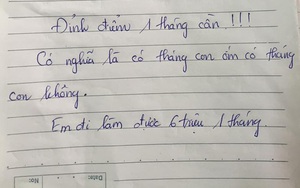 Đỉnh điểm 1 tháng cần !!!
Có nghĩa là có tháng con ốm có tháng
con không.
Em đi làm được 6 triệu 1 tháng
Date:
No: